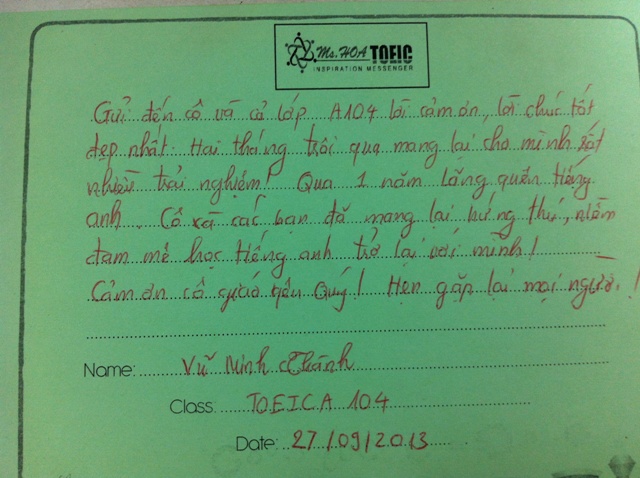 Ms. HOA TOEIC
INSPIRATION MESSENGER
Gửi đến cô và cả lớp A104 lời cảm ơn, lời chúc tốt
đẹp nhất. Hai tháng trôi qua mang lại cho mình rất
nhiều trải nghiệm! Qua 1 năm lãng quên tiếng
anh. Cô và các bạn đã mang lại hứng thú, niềm
đam mê học tiếng anh trở lại với mình!
Cảm ơn cô giáo yêu Quý! Hẹn gặp lại mọi người!
Name: Vũ Minh Thành
Class: TOEIC A 104
Date: 27/09/2013